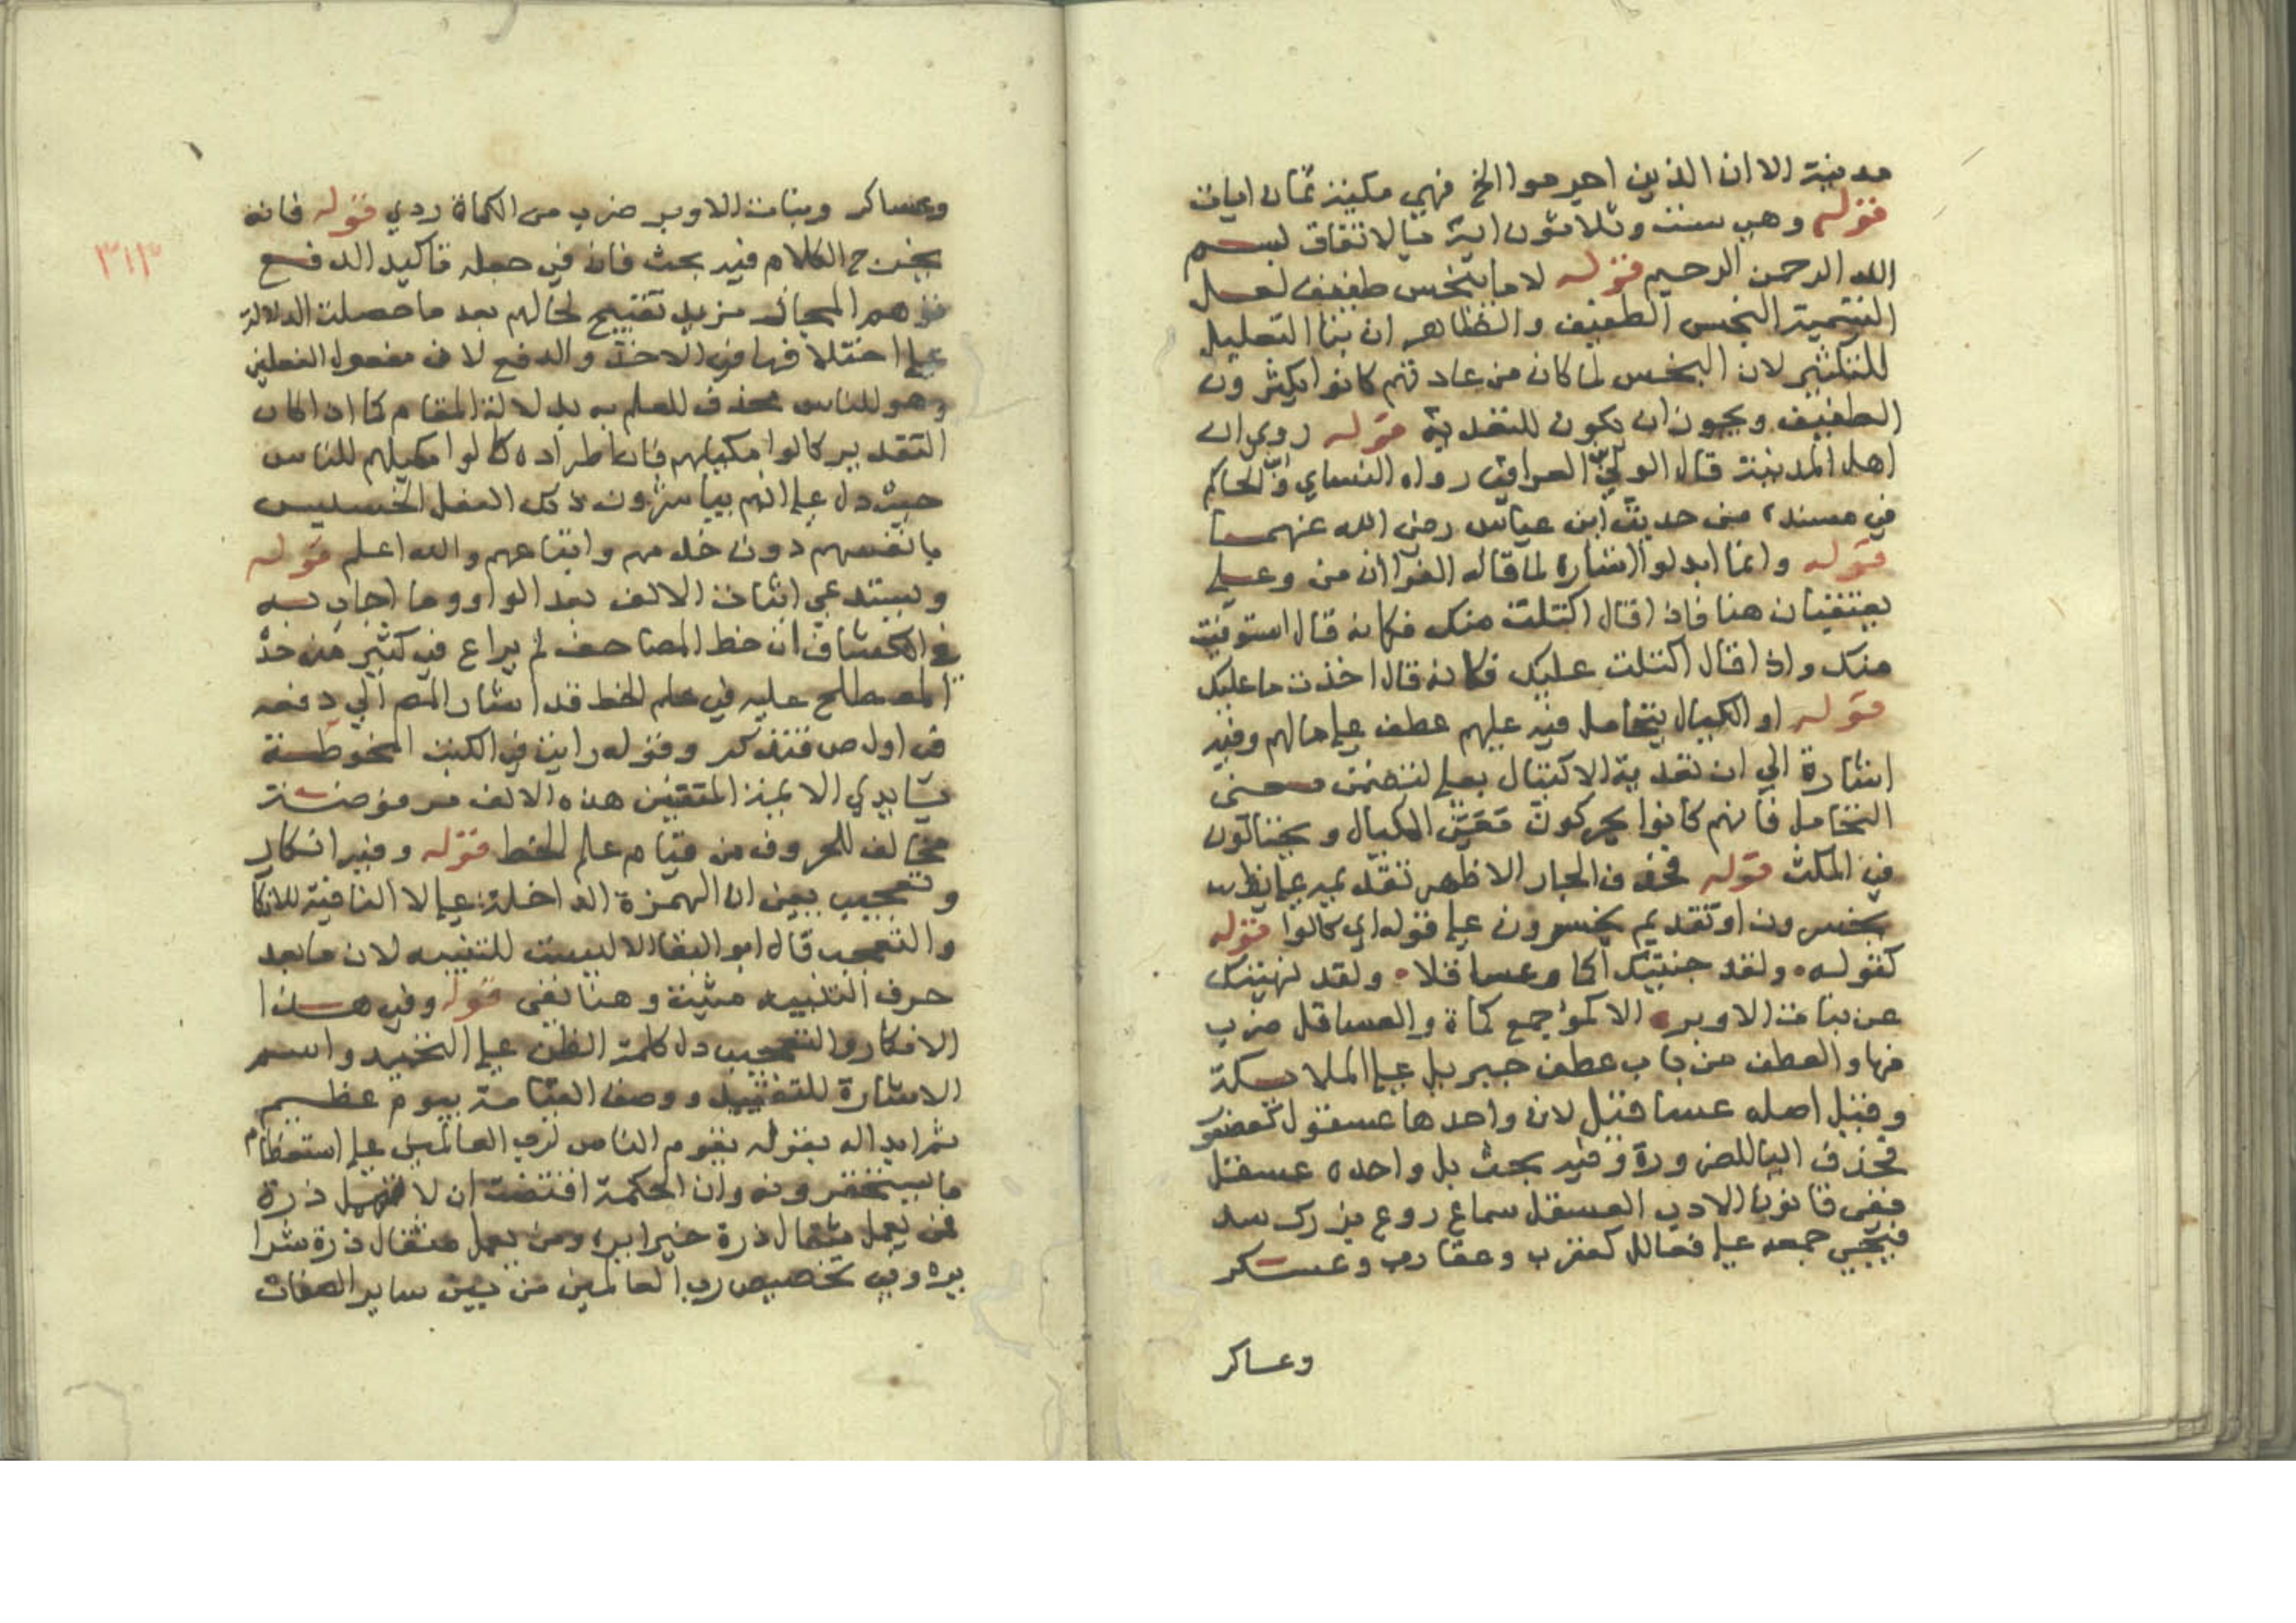 مدنية الا ان الذين اجرموا الخ فهي مكية ثمان ايات
قوله وهي ست وثلاثون اية بالاتفاق بسم
الله الرحمن الرحيم قوله لا ما يبخس طفيف لعل
التسمية البخس الطفيف والظاهر ان بنا التفعيل
للتكثير لان البخس لما كان من عادتهم كانوا يكثرون
الطفيف ويجوز ان يكون للتعدية قوله روي ان
اهل المدينة قال الولي العراقي رواه النساي والحاكم
في مسنده من حديث ابن عباس رضي الله عنهما
قوله وانما ابدلوا اشارة لما قاله الفرا ان من وعلي
يعتقبان هنا فاذا قال اكتلت منك فكانه قال استوفيت
منك واذا قال اكتلت عليك فكانه قال اخذت ما عليك
قوله او اكتيال يتحامل فيه عليهم عطف علي مالهم وفيه
اشارة الي ان تعدية الاكتيال بعلي لتضمن معني
التحامل فانهم كانوا يحركون المكيال ويحتالون
في المكث قوله فحذف الجار الاظهر تقديمه علي
يخسرون او تقديم يخسرون علي قوله اي كالوا قوله
كقوله ولقد جنيتك اكموا وعساقلا ولقد نهيتك
عن بنات الاوبر الاكمؤ جمع كماة والعساقل ضرب
منها والعطف من باب عطف جبريل علي الملايكة
وقيل اصله عساقيل لان واحدها عسقول كعصفور
فحذف اليا للضرورة وفيه بحث بل واحده عسقل
ففي قانون الادب العسقل سماع روع بزرك سد
فيجي جمعه علي فعالل كعقرب وعقارب وعسكر
وعساكر
وعساكر وبنات الاوبر ضرب من الكماة ردي قوله فانه
يخرج الكلام فيه بحث فان في جعله تاكيد الدفع
توهم المجاز مزيد تقبيح لحالهم بعد ما حصلت الدلالة
علي اختلافها في الاخذ والدفع لان مفعول الفعلين
وهو للناس محذف للعلم به بدلالة المقام كما اذا كان
التقدير كالوا مكيلهم فان اطراده كالوا مكيلهم للناس
حيث دل علي انهم يباشرون ذلك الفعل الخسيس
بانفسهم دون خدمهم واتباعهم والله اعلم قوله
ويستدعي اثبات الالف بعد الواو وما اجاب به
في الكشاف ان خط المصاحف لم يراع في كثير منه حد
المصطلح عليه في علم الخط قد اشار المص الي دفعه
في اول ص فتذكر وقوله رايت في الكتب المخوطنة
بايدي الايمة المتقنين هذه الالف مرفوضة
مخالف للمعروف من قيام علم الخط قوله وفيه انكار
وتعجيب يعني ان الهمزة الداخلة علي لا النافية للانكا
والتعجب قال ابو البقا الا ليست للتنبيه لان ما بعد
حرف التنبيه مثبت وهنا نفي قوله وفي هذا
الانكار والتعجيب دل كلمة الظن علي التخييد واسم
الاشارة للتبعيد ووصف القيامة بيوم عظيم
ثم ابداله بقوله يقوم الناس لرب العالمين علي استعظام
ما يستحقرونه وان الحكمة اقتضت ان لا تهمل ذرة
من يعمل مثقال ذرة خيرا يره ومن يعمل مثقال ذرة شرا
يره وفي تخصيص رب العالمين من بين ساير الصفات
٣١٣